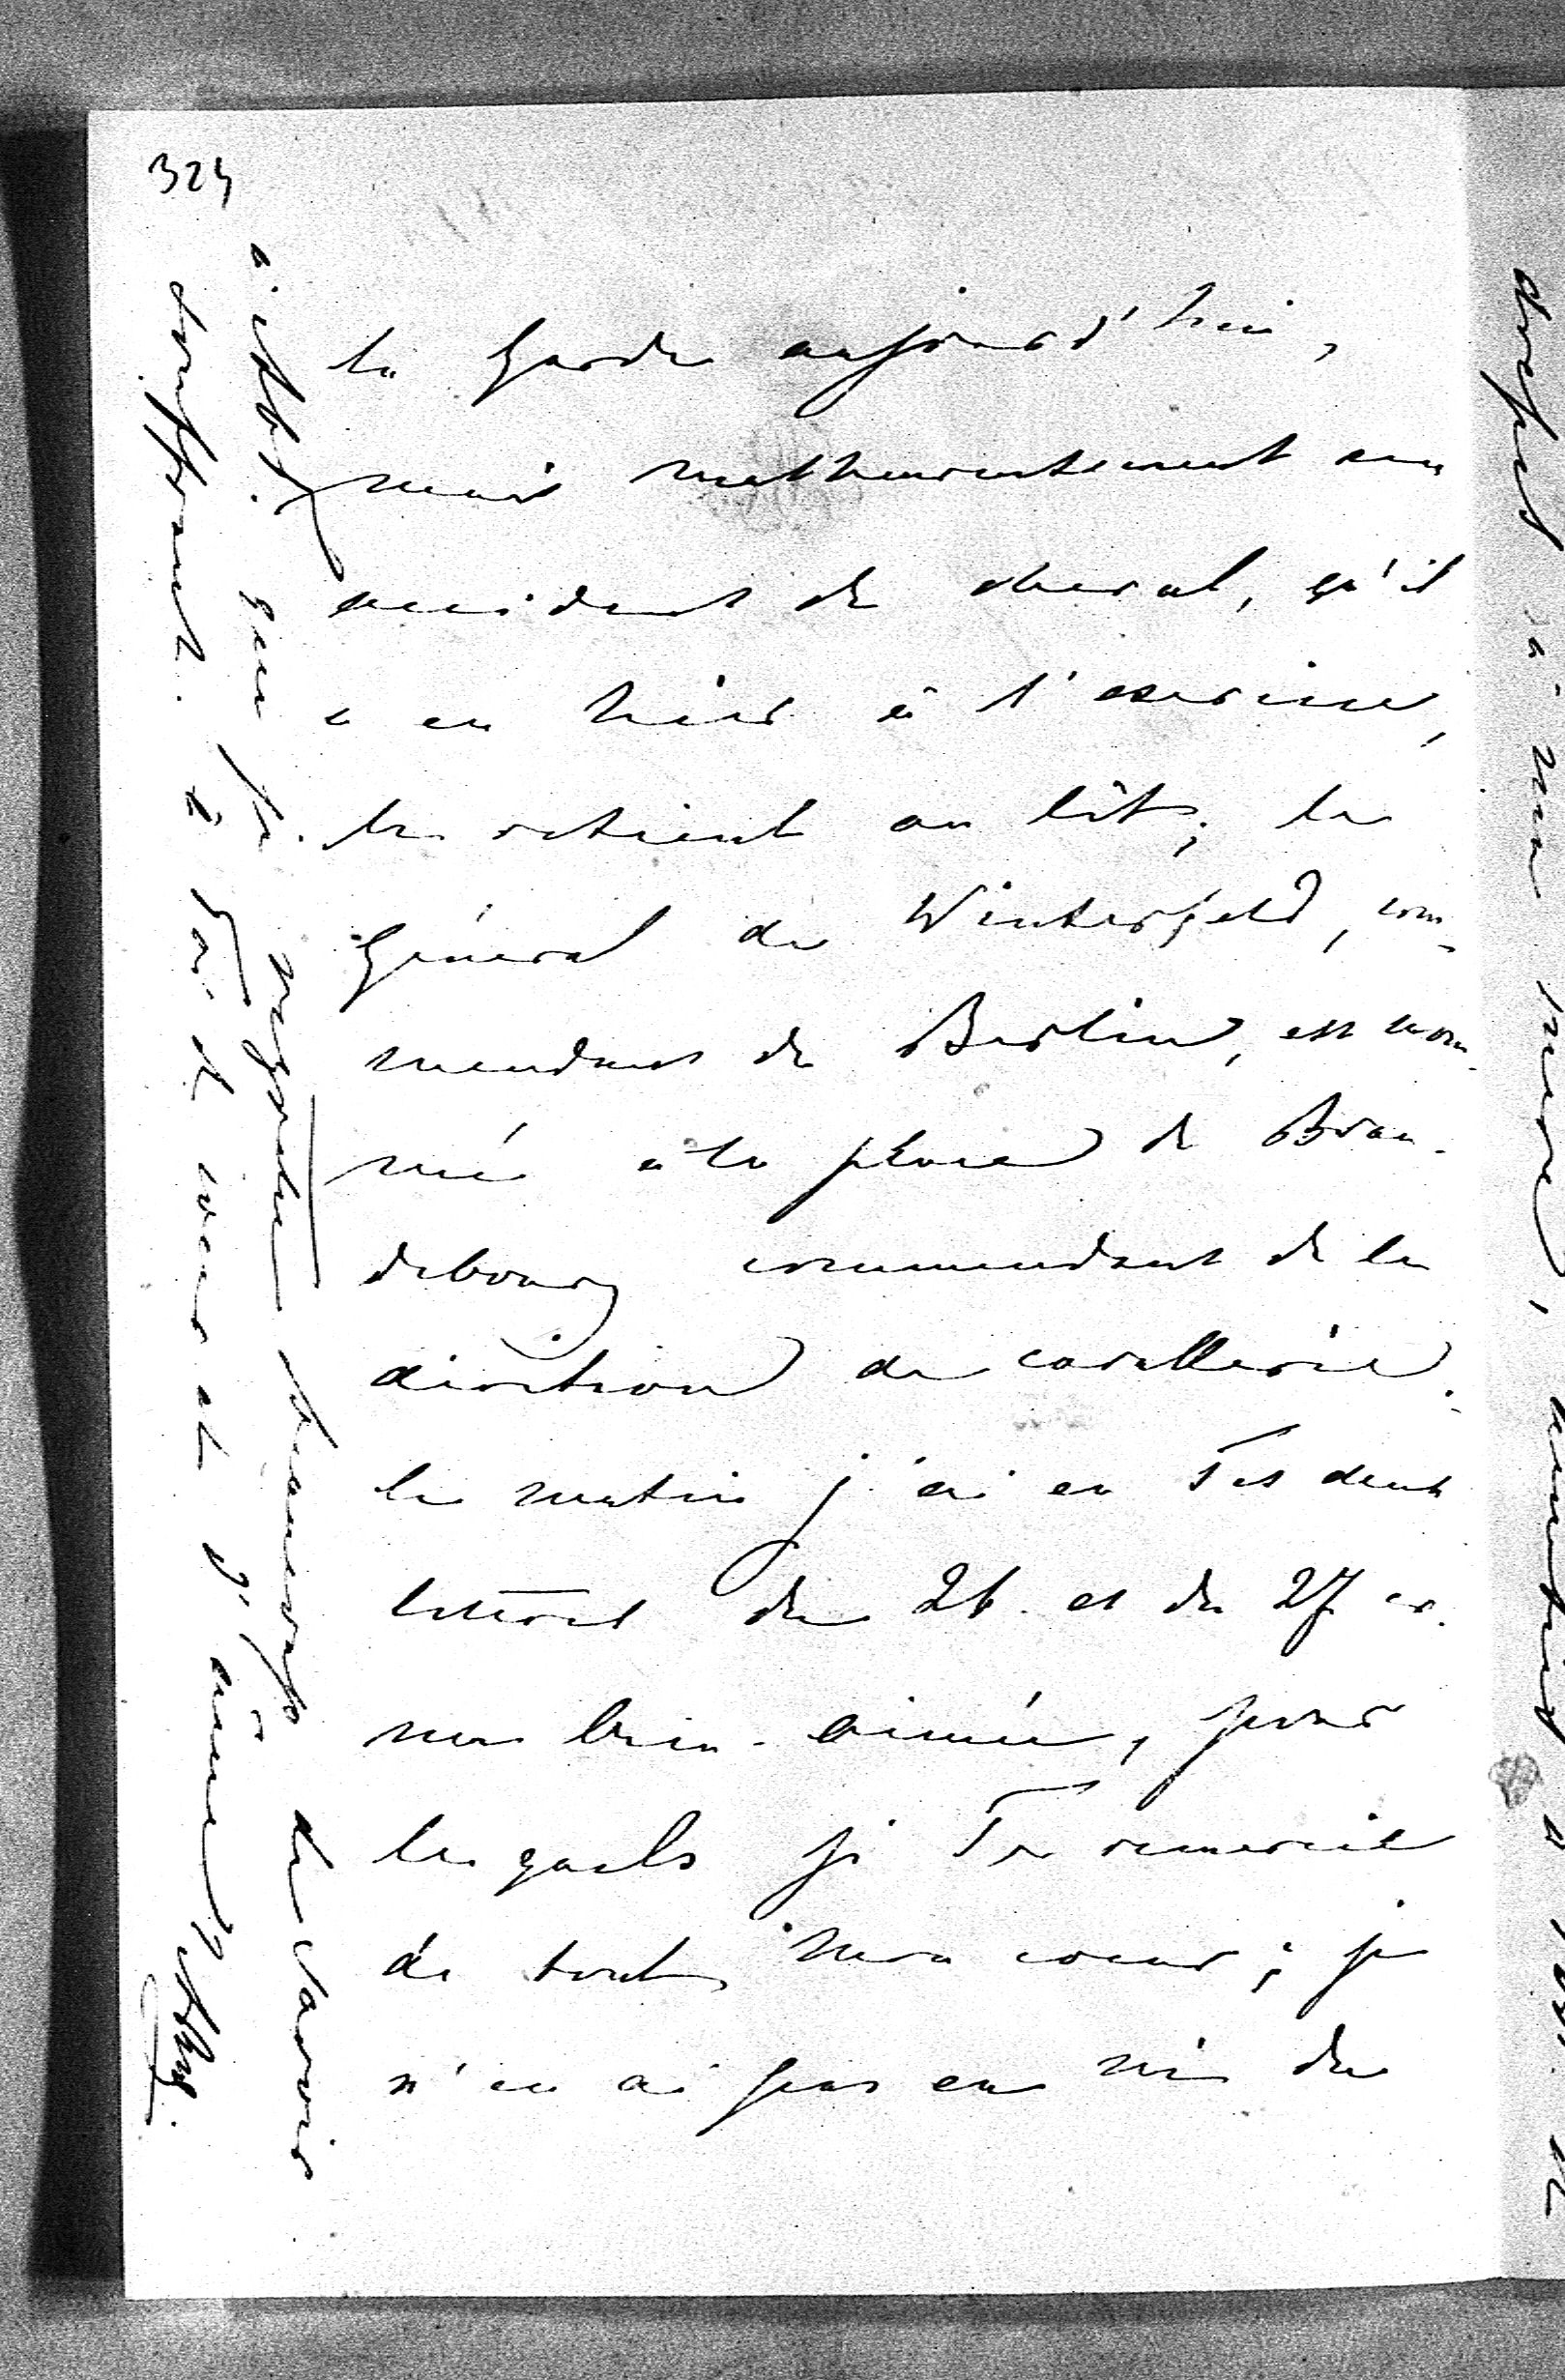 324
la Garde aujourd'hui,
mais malheureusement un
accident de cheval, qu'il
a eu hier à l'exercice,
le retient au lit; le
Général de Winterfeld, com-
mendant de Berlin, est nom-
mé à la place de Bran-
debourg commendant de la
division de cavallerie.
Ce matin j'ai eu Tes deux
lettres du 26. et du 27 cr.
ma bien-aimée, pour
lesquels je Te remercie
de tout mon coeur; je
n'en ai pas eu ni du
que je regrette beaucoup de savoir
souffrant. à Toi de coeur et d'âme